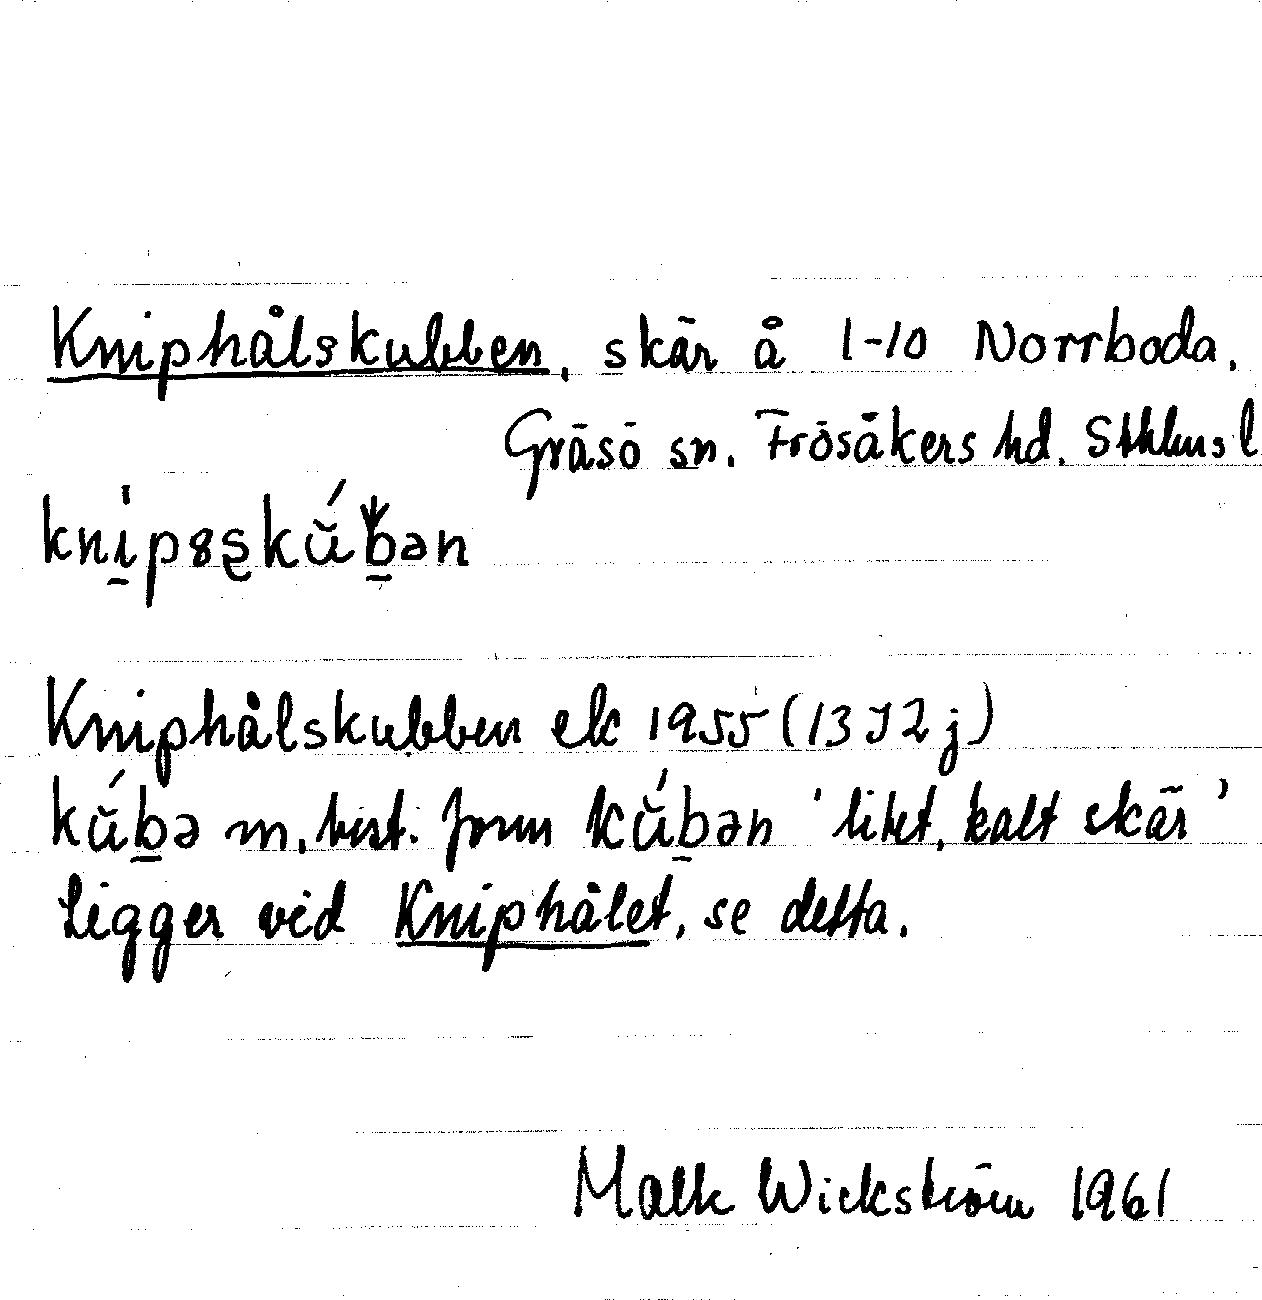 Kniphålskubben, skär å 1-10 Norrboda.
Gräsö sn. Frösåkers hd. Sthlms l
kni̠p8s̨kŭ́b̠ən
Kniphålskubben ek 1955 (13 I 2 j)
kŭ́b̠ə m. best. form kŭ́b̠ən 'litet, kalt skär'
Ligger vid Kniphålet, se detta.
Wickström 1961